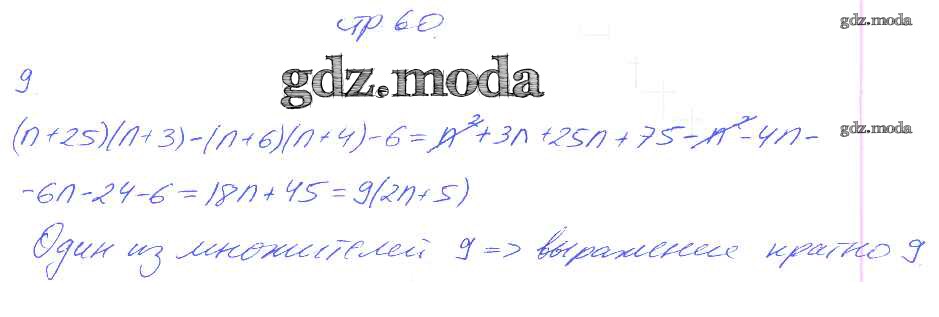 стр. 60.
gdz.moda
gdz.moda
9.
(n+25)(n+3)-(n+6)(n+4)-6=n²+3n+25n+75-n²-4n-
gdz.moda
-6n-24-6=18n+45=9(2n+5)
Один из множителей 9 => выражение кратно 9.